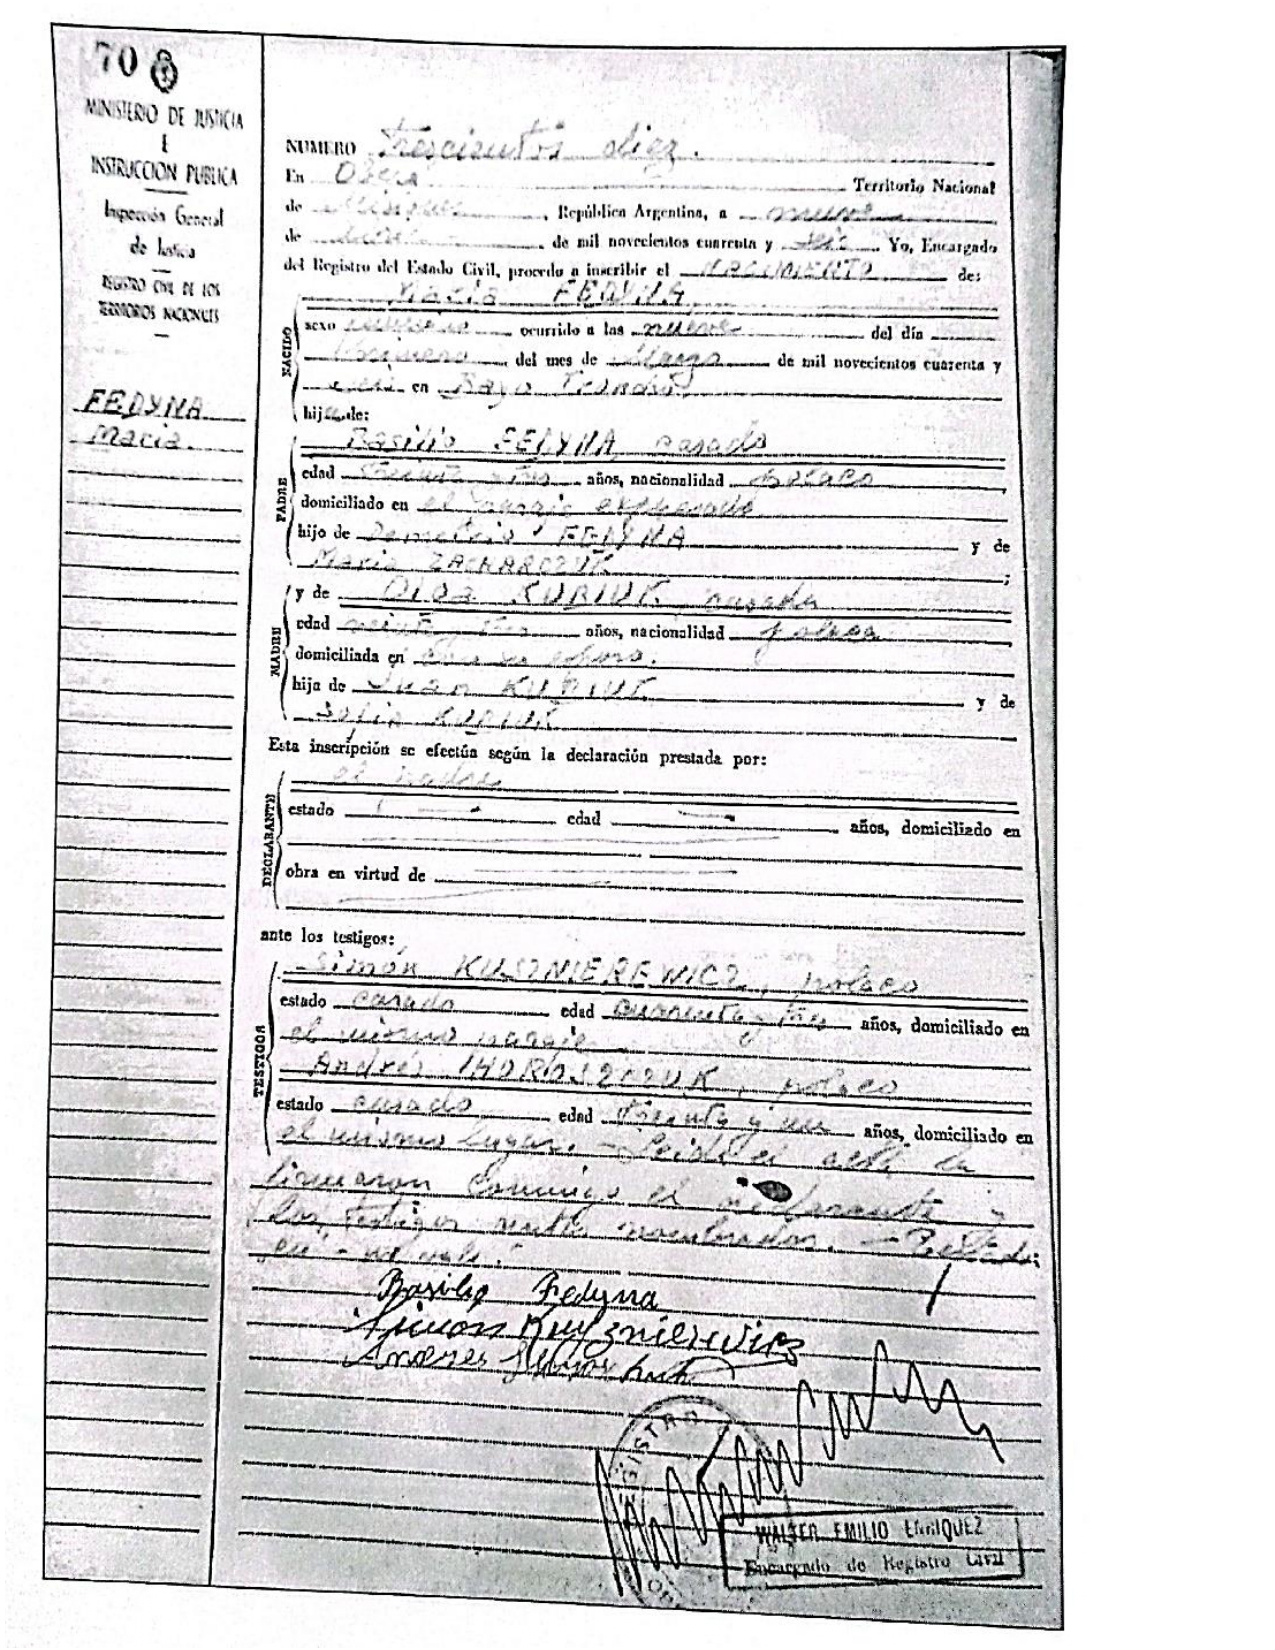 70
MINISTERIO DE JUSTICIA
E
INSTRUCCION PUBLICA
Inspección General
de Justicia
REGISTRO CIVIL DE LOS
TERRITORIOS NACIONALES
FEDYNA
María.
NUMERO Trescientos diez.
En Oberá Territorio Nacional
de Misiones, República Argentina, a nueve
de de mil novecientos cuarenta y seis Yo, Encargado
del Registro del Estado Civil, procedo a inscribir el NACIMIENTO de:
María FEDYNA
NACIDO
sexo ocurrido a las nueve del día
Primero del mes de Marzo de mil novecientos cuarenta y
seis en Bayo Troncho
hija de:
PADRE
Basilio FEDYNA casado
edad treinta y tres años, nacionalidad polaco
domiciliado en el paraje expresado
hijo de Demetrio FEDYNA y de
María ZACHARCZUK ;
MADRE
y de Olga KUBIUK casada
edad veinte y tres años, nacionalidad polaca
domiciliada en con su esposo.
hija de Juan KUBIUK y de
Sofía KUBIUK
Esta inscripción se efectúa según la declaración prestada por:
DECLARANTE
el padre
estado edad años, domiciliado en
obra en virtud de
ante los testigos:
TESTIGOS
Simón KUSZNIEREWICZ, polaco
estado casado edad cuarenta y tres años, domiciliado en
el mismo paraje
Andrés IHOROSZCZUK, polaco
estado casado edad treinta y un años, domiciliado en
el mismo lugar. - Leida el acta la
firmaron conmigo el declarante y
los testigos nombrados. - Testado:
no vale."
Basilio Fedyna
Simón Kusznierewicz
Andres
REGISTRO
WALTER EMILIO ENRIQUEZ
Encargado de Registro Civil